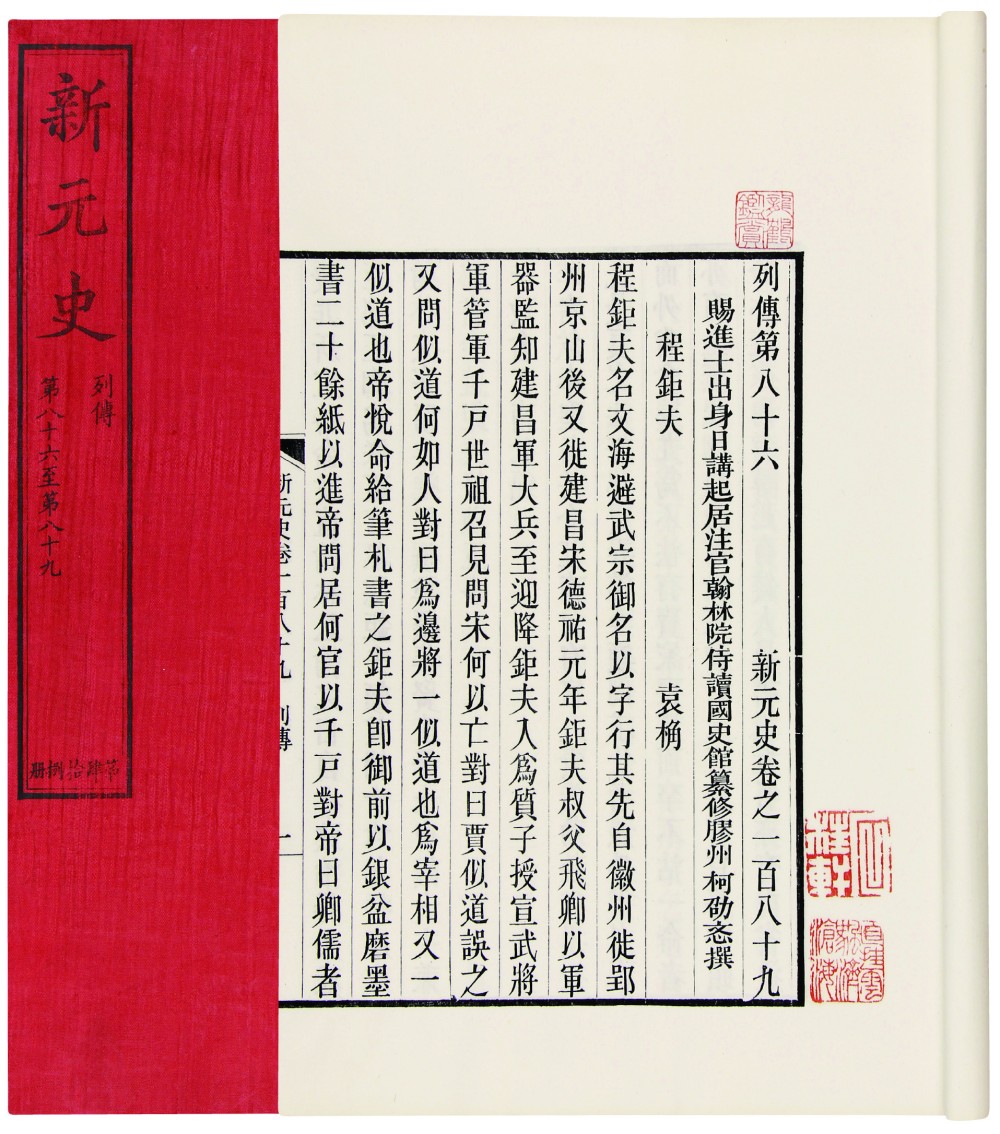 新元史
列傳
第八十六至第八十九
第肆拾捌册
龍鶴鑑賞
列傳第八十六 新元史卷之一百八十九
賜進士出身日講起居注官翰林院侍讀國史館纂修膠州柯劭忞撰
程鉅夫 袁桷
程鉅夫名文海避武宗御名以字行其先自徽州徙郢
州京山後又徙建昌宋德祐元年鉅夫叔父飛卿以軍
器監知建昌軍大兵至迎降鉅夫入爲質子授宣武將
軍管軍千戸世祖召見問宋何以亡對曰賈似道誤之
又問似道何如人對曰爲邊將一似道也爲宰相又一
似道也帝悅命給筆札書之鉅夫卽御前以銀盆磨墨
書二十餘紙以進帝問居何官以千戸對帝曰卿儒者
新元史卷一百八十九 列傳 一
直挂雲帆濟滄海